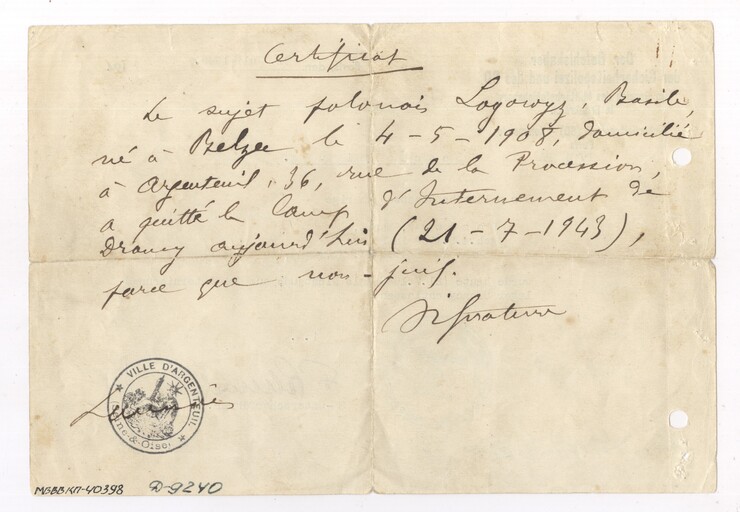 Certificat
Le sujet polonais Logowyz, Basile,
né à Belzec le 4-5-1908, domicilié
à Argenteuil, 36, rue de la Procession,
a quitté le Camp d'Internement de
Drancy aujourd'hui (21-7-1943),
parce que non-juif.
Signature
VILLE D'ARGENTEUIL
Seine-&-Oise
МБВВ КП-40398
D-9240